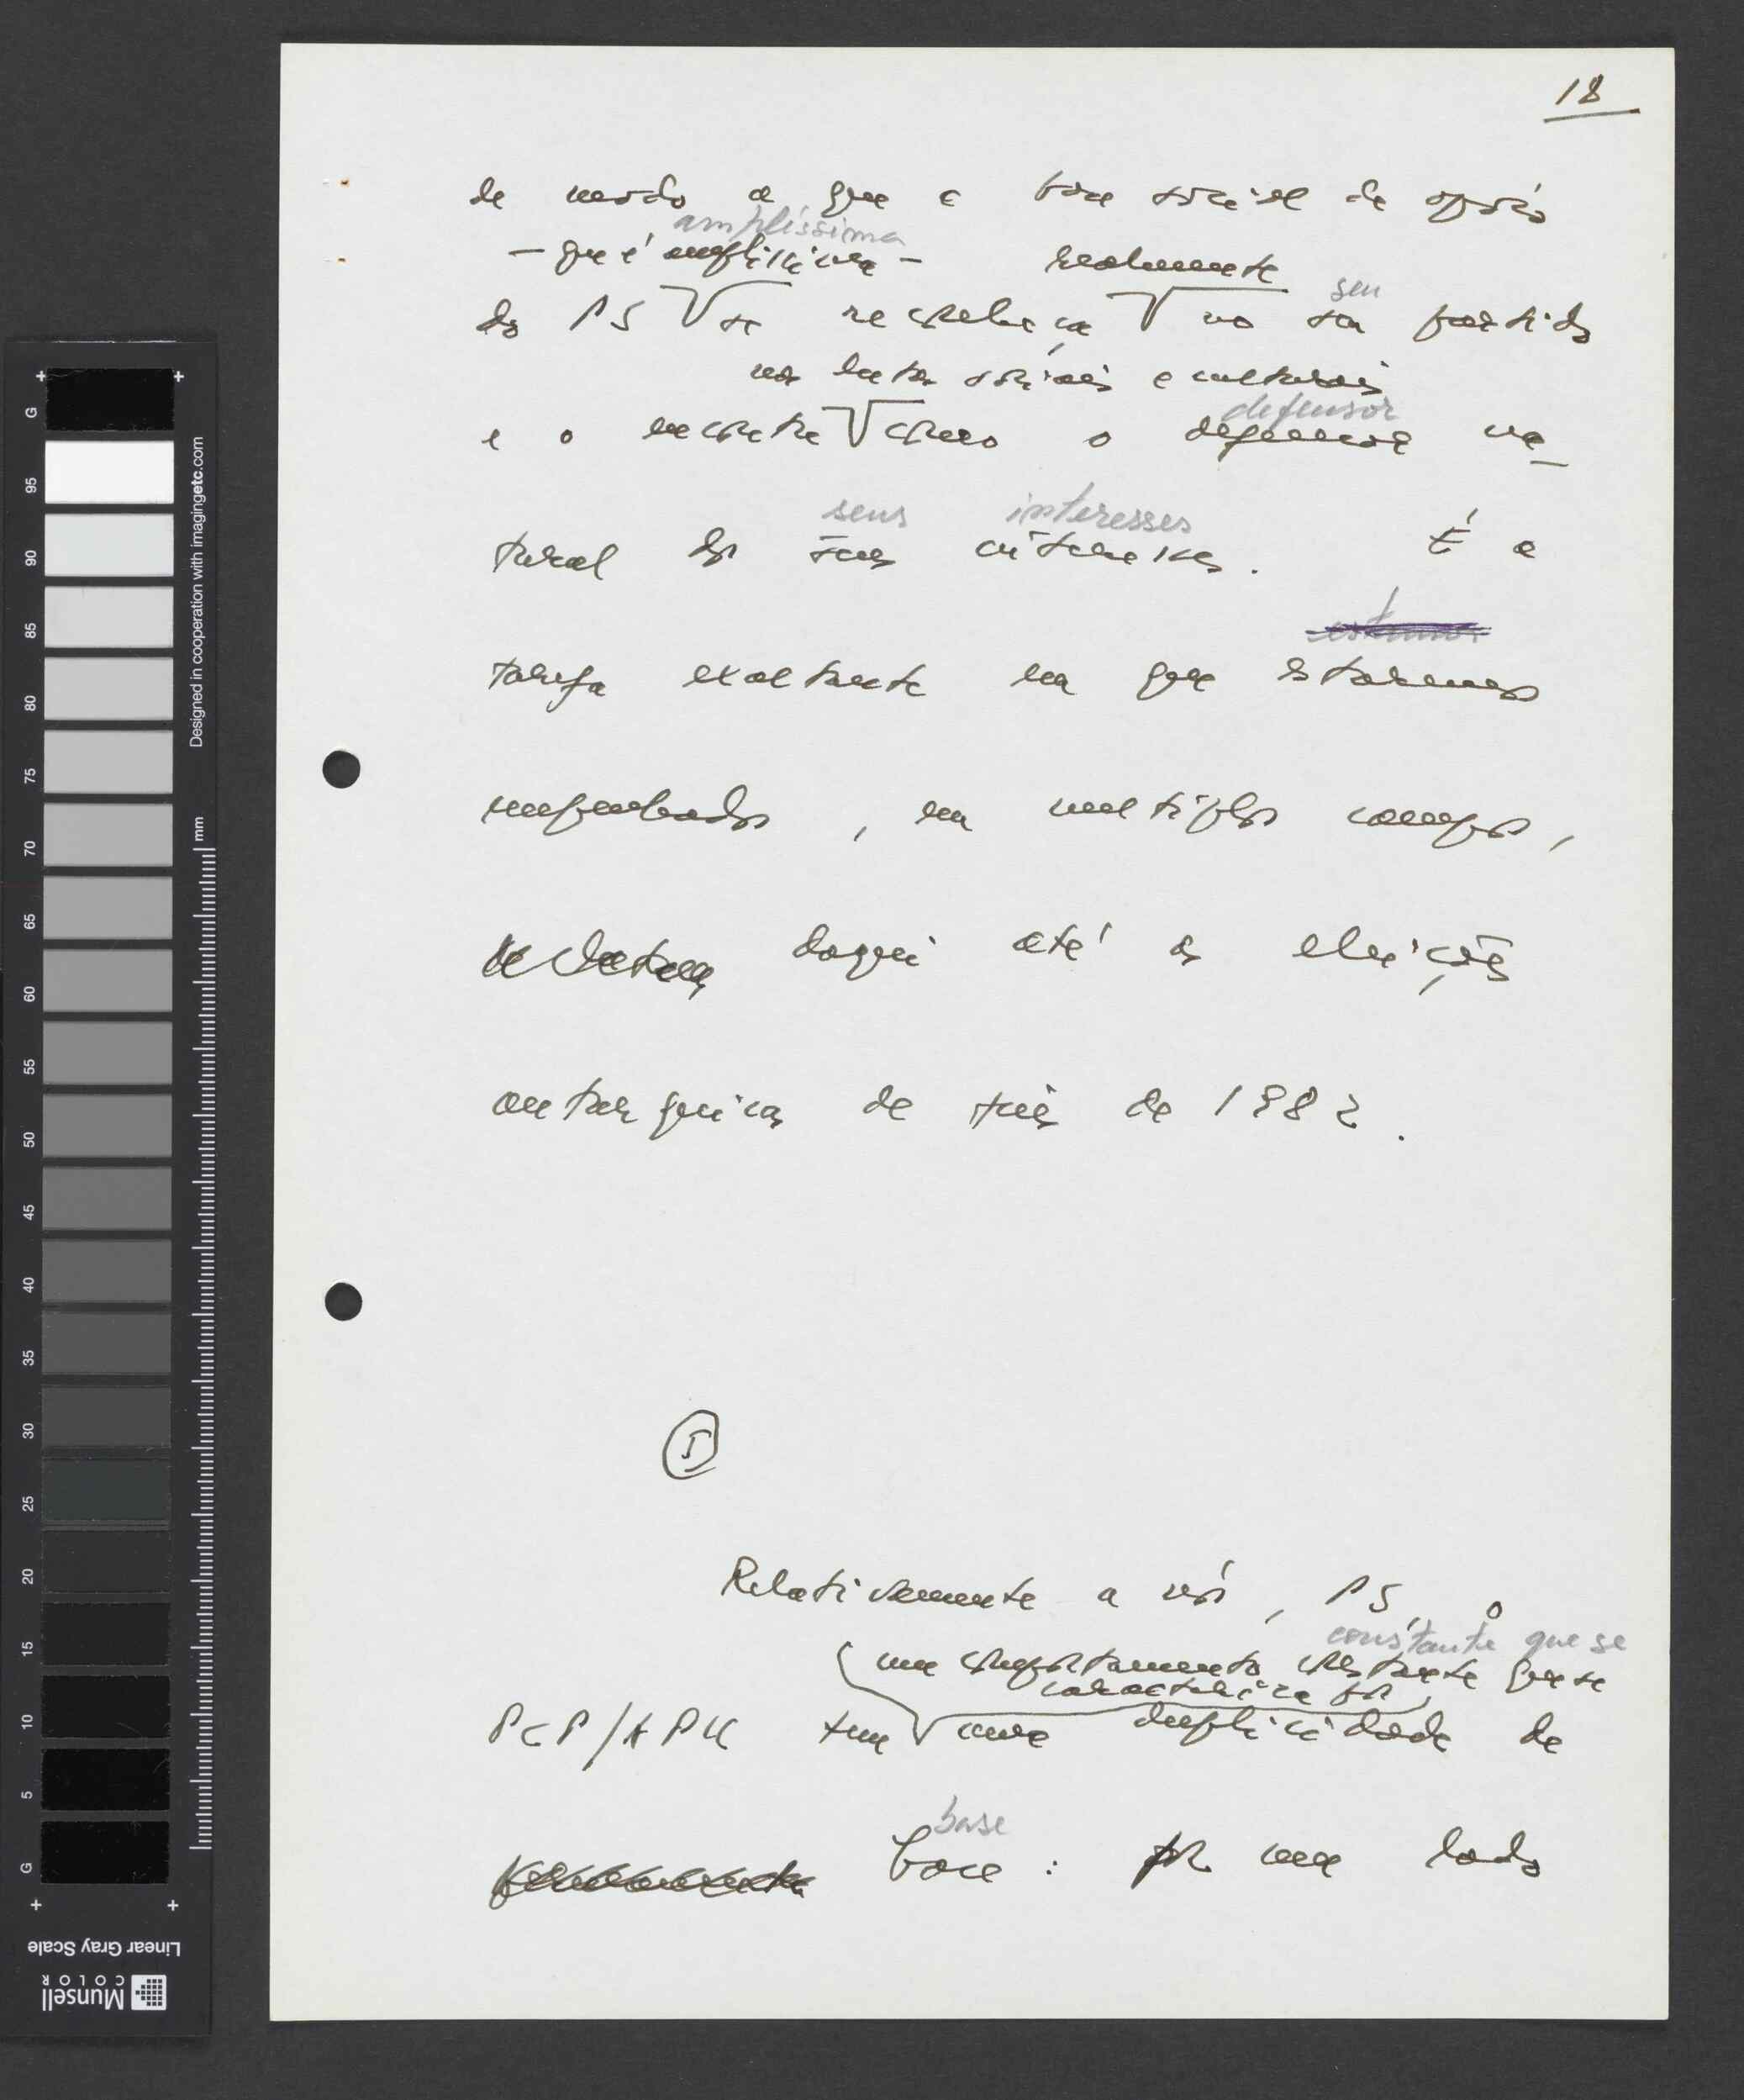 18
de modo a que a base social de apoio
amplíssima
— que é amplíssima — realmente
seu
do PS se reconheça no seu partido
nas lutas sociais e culturais
defensor
e o encontre como o defensor na-
seus interesses
tural dos seus interesses. É a
tarefa exaltante em que estaremos
empenhados, em multiplos campos,
daqui até às eleições
autarquicas de fins de 1982.
5
Relativamente a nós, PS, o
constante que se
um comportamento constante que se
caracteriza por
PCP/APU tem uma duplicidade de
base
base: por um lado
G
95
90
85
80
75
70
65
60
55
50
45
40
35
30
25
20
15
10
5
G
mm
Designed in cooperation with imagingetc.com
Linear Gray Scale
Munsell
COLOR